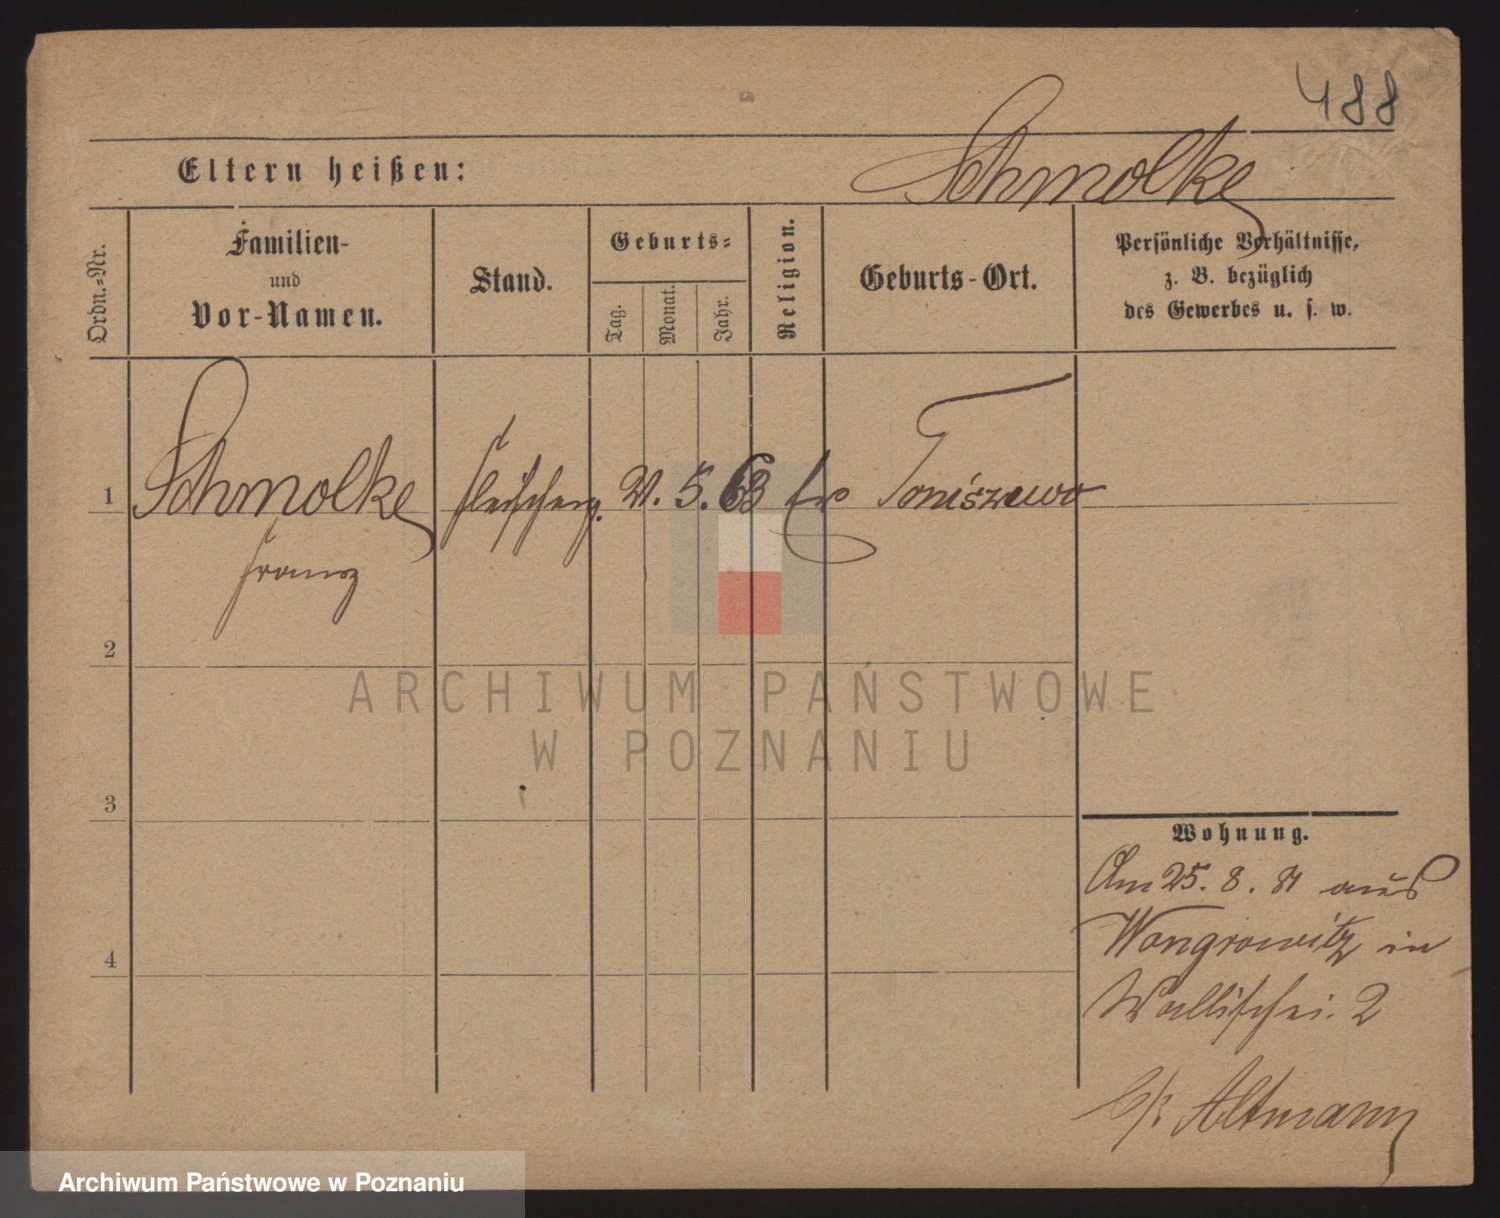 488
Schmolke
Eltern heißen:
Ordn.=Nr.
Familien-
und
Vor-Namen.
Stand.
Geburts=
Tag.
Monat.
Jahr.
Religion.
Geburts-Ort.
Persönliche Verhältnisse,
z. B. bezüglich
des Gewerbes u. s. w.
1
Schmolke
Franz
Fleischerg. 21. 5. 63
Toniszewo
2
3
4
Wohnung.
Am 25. 8. 81 aus
Wongrowitz in
Wallischei. 2
b/ Altmann
ARCHIWUM PAŃSTWOWE
W POZNANIU
Archiwum Państwowe w Poznaniu